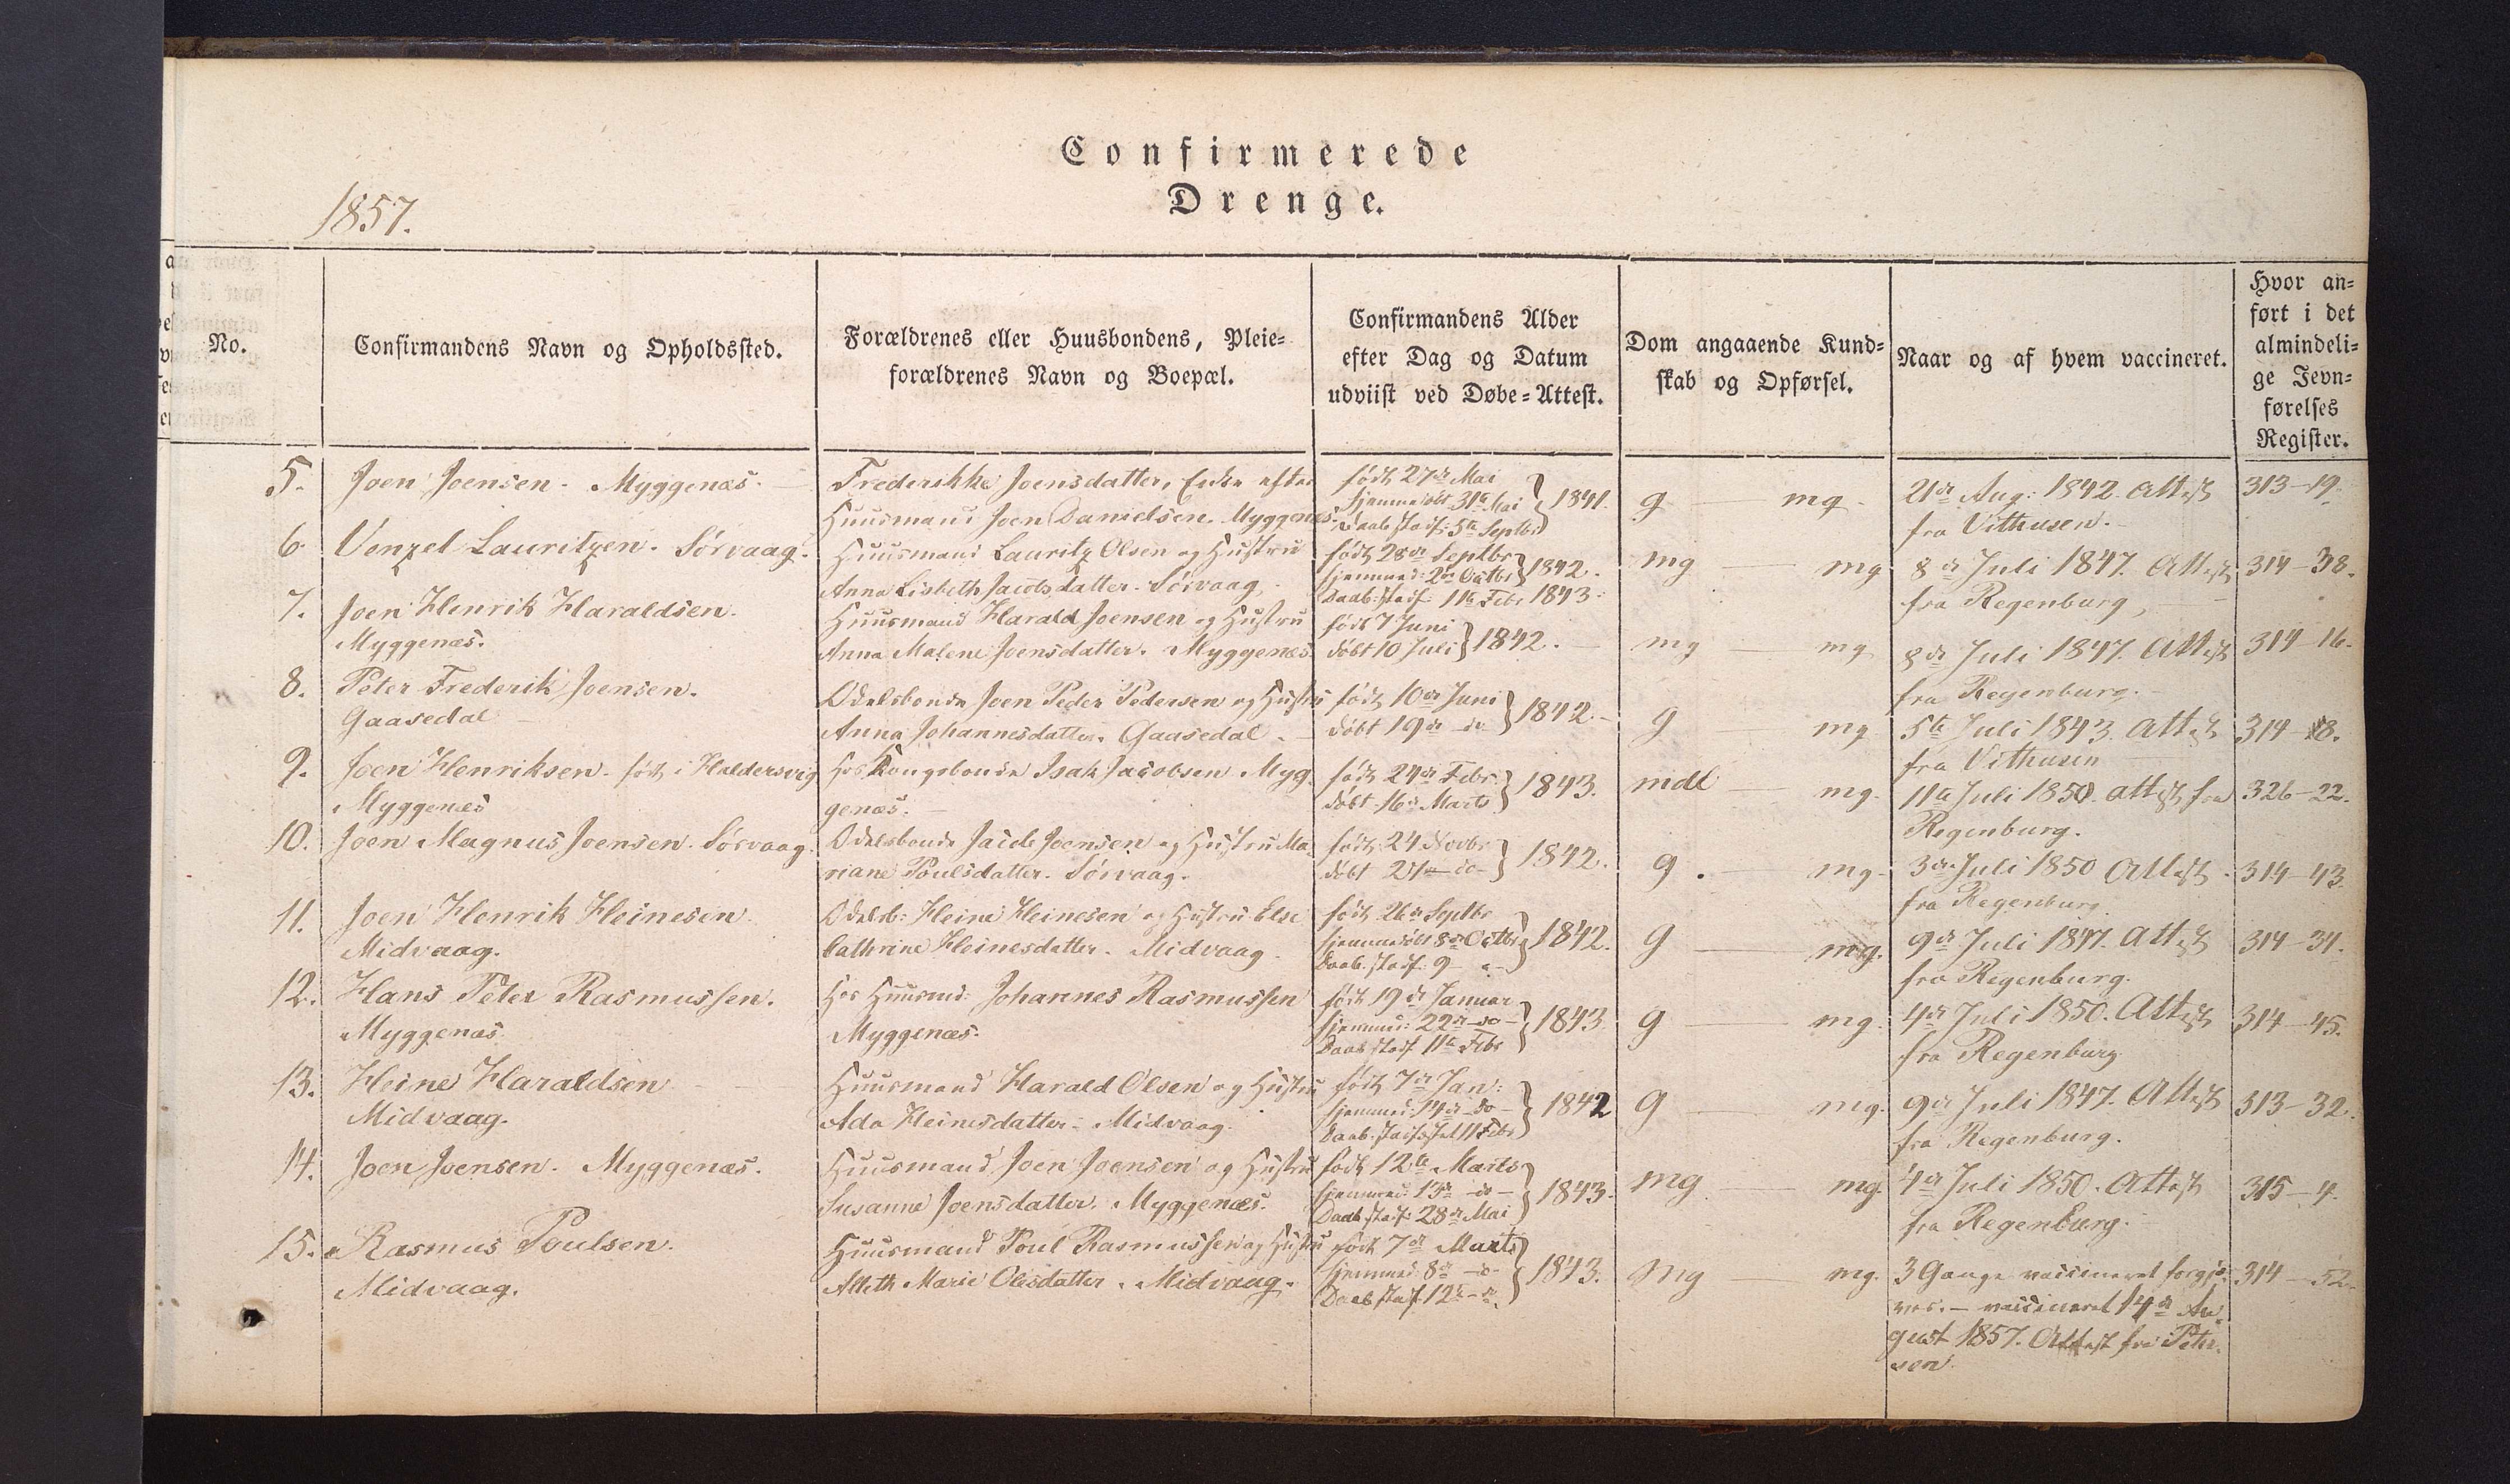 Confirmerede
Drenge.
1857.
No.
Confirmandens Navn og Opholdssted.
Forældrenes eller Huusbondens, Pleie=
forældrenes Navn og Boepæl.
Confirmandens Alder
efter Dag og Datum
udviist ved Døbe=Attest.
Dom angaaende Kund=
skab og Opførsel.
Naar og af hvem vaccineret.
Hvor an=
ført i det
almindeli=
ge Jevn=
førelses
Register.
5. Joen Joensen. Myggenæs.
Frederikke Joensdatter, Enke efter
Huusmand Joen Danielsen. Myggenæs.
født 27de Mai
hjemmedøbt 31te Mai } 1841.
Daab stadf: 5te Septbr
g — mg.
21de Aug: 1842. Attest
fra Vithusen.
313-19.
6. Venzel Lauritzen. Sørvaag.
Huusmand Lauritz Olsen og Hustru
Anna Lisbeth Jacobsdatter. Sørvaag.
født 28de Septbr
hjemmed: 2den Octbr } 1842.
Daab: stadf: 11te Febr 1843.
mg — mg
8de Juli 1847. Attest
fra Regenburg,
314-38.
7. Joen Henrik Haraldsen.
Myggenæs.
Huusmand Harald Joensen og Hustru
Anna Malene Joensdatter. Myggenæs
født 7 Juni
døbt 10 Juli } 1842.
mg — mg
8de Juli 1847. Attest
fra Regenburg.
314-16.
8. Peter Frederik Joensen.
Gaasedal
Odelsbonde Joen Peder Pedersen og Hustru
Anna Johannesdatter. Gaasedal.
født 10de Juni
døbt 19de do } 1842.
g — mg
5te Juli 1843. Attest
fra Vithusen
314-18.
9. Joen Henriksen. født i Haldersvig
Myggenæs
Hos Kongsbonde Isak Jacobsen Myg
genæs.
født 24de Febr.
døbt 16de Marts } 1843.
mdl — mg.
11te Juli 1850. attest fra
Regenburg.
326-22.
10. Joen Magnus Joensen. Sørvaag.
Odelsbonde Jacob Joensen og Hustru Ma
riane Poulsdatter. Sørvaag.
født 24 Novbr
døbt 27 do } 1842.
g. — mg.
3de Juli 1850 Attest
fra Regenburg.
314-43.
11. Joen Henrik Heinesen.
Midvaag.
Odelsb: Heine Heinesen og Hustru Else
Cathrine Heinesdatter. Midvaag.
født 26de Septbr
hjemmedøbt 8de Octbr } 1842.
Daab. stadf. 9
g — mg.
9de Juli 1847. Attest
fra Regenburg.
314-34.
12. Hans Peter Rasmussen.
Myggenæs
Hos Huusmd: Johannes Rasmussen
Myggenæs.
født 19de Januar
hjemmed: 22de do } 1843.
Daab stadf 11te Febr
g — mg.
4de Juli 1850. Attest
fra Regenburg
314-45.
13. Heine Haraldsen
Midvaag.
Huusmand Harald Olsen og Hustru
Ada Heinesdatter. Midvaag.
født 7de Jan:
hjemmed: 14de do } 1842
Daab. stadfæstet 11 Febr
g — mg.
9de Juli 1847. Attest
fra Regenburg.
313-32.
14. Joen Joensen. Myggenæs.
Huusmand Joen Joensen og Hustru
Susanne Joensdatter. Myggenæs.
født 12te Marts
hjemmed: 13de do } 1843.
Daab stadf: 28de Mai
mg — mg.
4de Juli 1850. Attest
fra Regenburg.
315-4.
15. Rasmus Poulsen.
Midvaag.
Huusmand Poul Rasmussen og Hustru
Marie Olesdatter. Midvaag.
født 7de Marts
hjemmed: 8de do } 1843.
Daab stadf. 12te
mg — mg.
3 Gange vaccineret forgjæ
ves. — vaccineret 14de Au
gust 1857. Attest fra Peter
sen.
314-52.